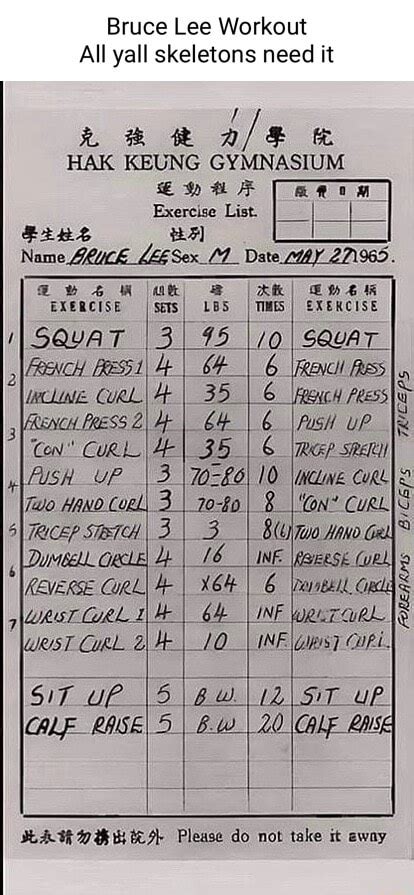 Bruce Lee Workout
All yall skeletons need it
克強健力學院
HAK KEUNG GYMNASIUM
運動程序
Exercise List.
學生姓名 性別
Name BRUCE LEE Sex M Date MAY 27 1965.
運動名稱 組數 磅 次數 運動名稱
EXERCISE SETS LBS TIMES EXERCISE
1 SQUAT 3 95 10 SQUAT
2 FRENCH PRESS 1 4 64 6 FRENCH PRESS
INCLINE CURL 4 35 6 FRENCH PRESS
3 FRENCH PRESS 2 4 64 6 PUSH UP
"CON" CURL 4 35 6 TRICEP STRETCH
4 PUSH UP 3 70-80 10 INCLINE CURL
TWO HAND CURL 3 70-80 8 "CON" CURL
5 TRICEP STRETCH 3 3 8(6) TWO HAND CURL
6 DUMBELL CIRCLE 4 16 INF. REVERSE CURL
REVERSE CURL 4 X64 6 DUMBELL CIRCLE
7 WRIST CURL 1 4 64 INF WRIST CURL
WRIST CURL 2 4 10 INF. WRIST CURL
SIT UP 5 B W. 12 SIT UP
CALF RAISE 5 B.W 20 CALF RAISE
TRICEPS
BICEPS
FOREARMS
此表請勿携出院外 Please do not take it away